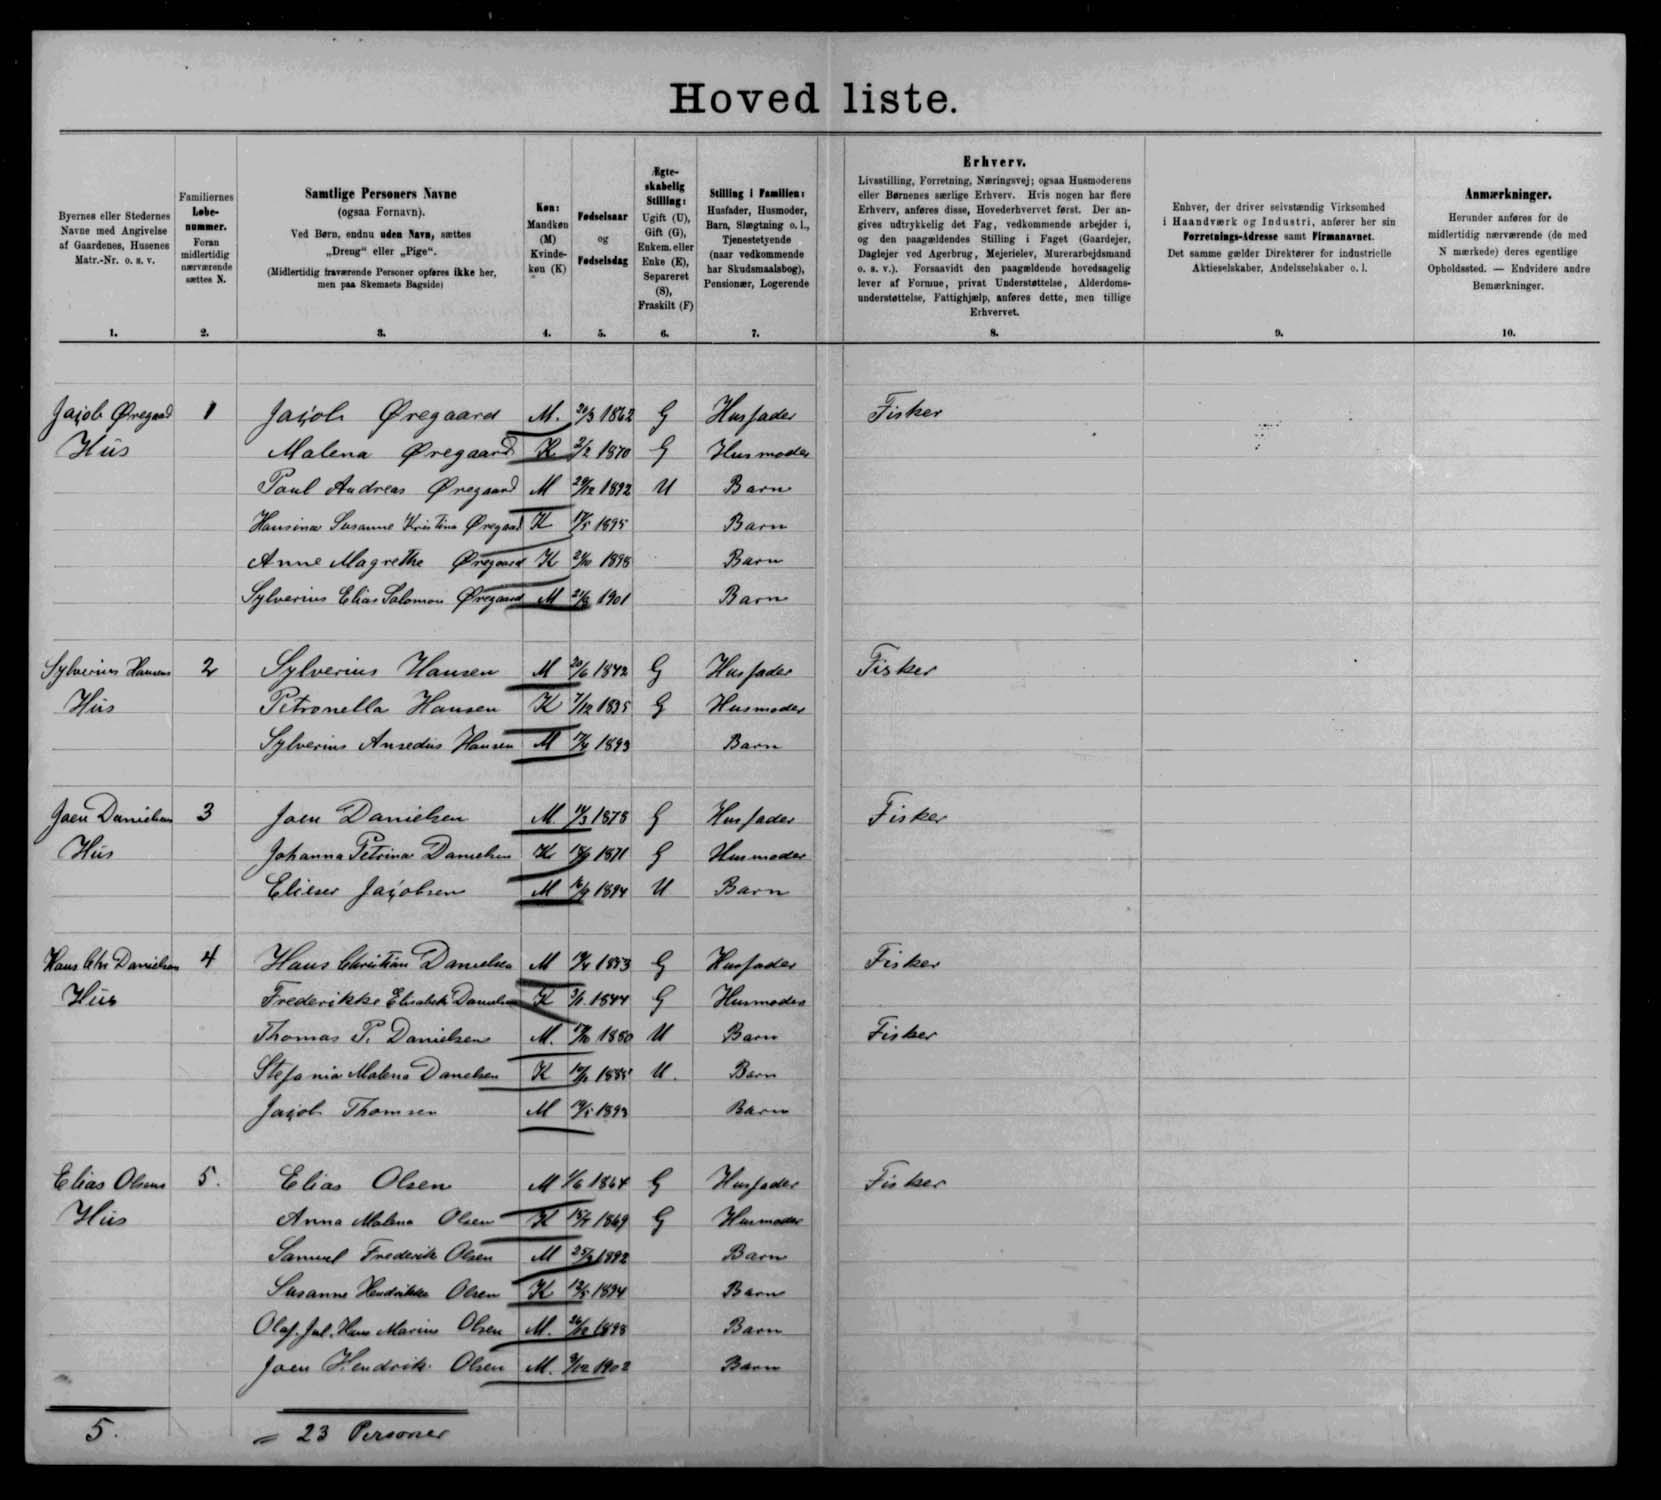 Hoved liste.
Byernes eller Stedernes Navne med Angivelse af Gaardenes, Husenes Matr.-Nr. o. s. v.
Familiernes Løbe-nummer. Foran midlertidig nærværende sættes N.
Samtlige Personers Navne
(ogsaa Fornavn).
Ved Børn, endnu uden Navn, sættes „Dreng“ eller „Pige“.
(Midlertidig fraværende Personer opføres ikke her, men paa Skemaets Bagside)
Køn: Mandkøn (M) Kvinde-køn (K)
Fødselsaar og Fødselsdag
Ægte-skabelig Stilling: Ugift (U), Gift (G), Enkem. eller Enke (E), Separeret (S), Fraskilt (F)
Stilling i Familien: Husfader, Husmoder, Barn, Slægtning o. l., Tjenestetyende (naar vedkommende har Skudsmaalsbog), Pensionær, Logerende
Erhverv.
Livsstilling, Forretning, Næringsvej; ogsaa Husmoderens
eller Børnenes særlige Erhverv. Hvis nogen har flere
Erhverv, anføres disse, Hovederhvervet først. Der an-
gives udtrykkelig det Fag, vedkommende arbejder i,
og den paagældendes Stilling i Faget (Gaardejer,
Daglejer ved Agerbrug, Mejerielev, Murerarbejdsmand
o. s. v.). Forsaavidt den paagældende hovedsagelig
lever af Formue, privat Understøttelse, Alderdoms-
understøttelse, Fattighjælp, anføres dette, men tillige
Erhvervet.
Enhver, der driver selvstændig Virksomhed
i Haandværk og Industri, anfører her sin
Forretnings-Adresse samt Firmanavnet.
Det samme gælder Direktører for industrielle
Aktieselskaber, Andelsselskaber o. l.
Anmærkninger.
Herunder anføres for de
midlertidig nærværende (de med
N mærkede) deres egentlige
Opholdssted. — Endvidere andre
Bemærkninger.
1. 2. 3. 4. 5. 6. 7. 8. 9. 10.
Jacob Øregaard 1 Jacob Øregaard M. 1862 G Husfader Fisker
Hús Malena Øregaard K 2/2 1870 G Husmoder
Poul Andreas Øregaard M 29/12 1892 U Barn
Hansina Susanne Kristina Øregaard K 17/5 1895 Barn
Anne Magrethe Øregaard K 1898 Barn
Sylverius Elias Salomon Øregaard M 1901 Barn
Sylverius Hansens 2 Sylverius Hansen M 20/6 1842 G Husfader Fisker
Hús Petronella Hansen K 7/12 1835 G Husmoder
Sylverius Ansedius Hansen M 1893 Barn
Joen Danielsens 3 Joen Danielsen M. 1878 G Husfader Fisker
Hús Johanna Petrina Danielsen K 1871 G Husmoder
Elieser Jacobsen M 1894 U Barn
Hans Chr Danielsens 4 Hans Christian Danielsen M 1853 G Husfader Fisker
Hús Frederikke Elisabeth Danielsen K 1844 G Husmoder
Thomas P. Danielsen M. 17/10 1880 U Barn Fisker
Stefania Malena Danielsen K 1885 U. Barn
Jacob Thomsen M 1893 Barn
Elias Olsens 5. Elias Olsen M 1/6 1864 G Husfader Fisker
Hús Anna Malena Olsen K 1869 G Husmoder
Samuel Frederik Olsen M 1892 Barn
Susanne Hendrikke Olsen K 12/5 1894 Barn
Olaf. Jul. Hans Marius Olsen M. 1898 Barn
Joen Hendrik Olsen M. 9/12 1902 Barn
5. = 23 Personer